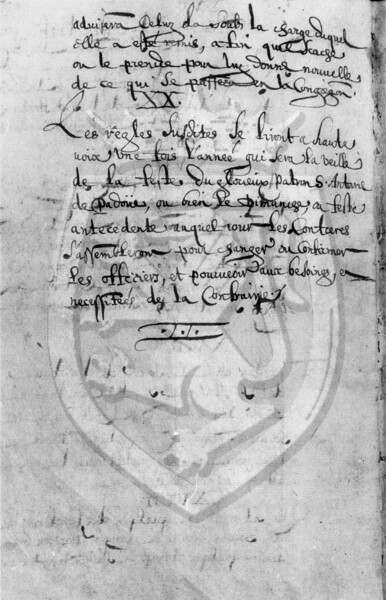 advisera celuy la soubs la charge duquel
elle a esté remis, afin que sache
ou le prendre pour luy donner nouvelle
de ce qui se passera en la Congregaon.
XX.
Les règles susdites se liront a haute
voix une fois l'année qui sera la veille
de la feste du glorieux Patron S. Antoine
de Padoüe, ou bien le Dimanche, ou feste
antecedente auquel jour les Confreres
s'assembleront pour changer ou confirmer
les officiers, et pourveoir aux besoines, et
necessitées de la Confrairie.